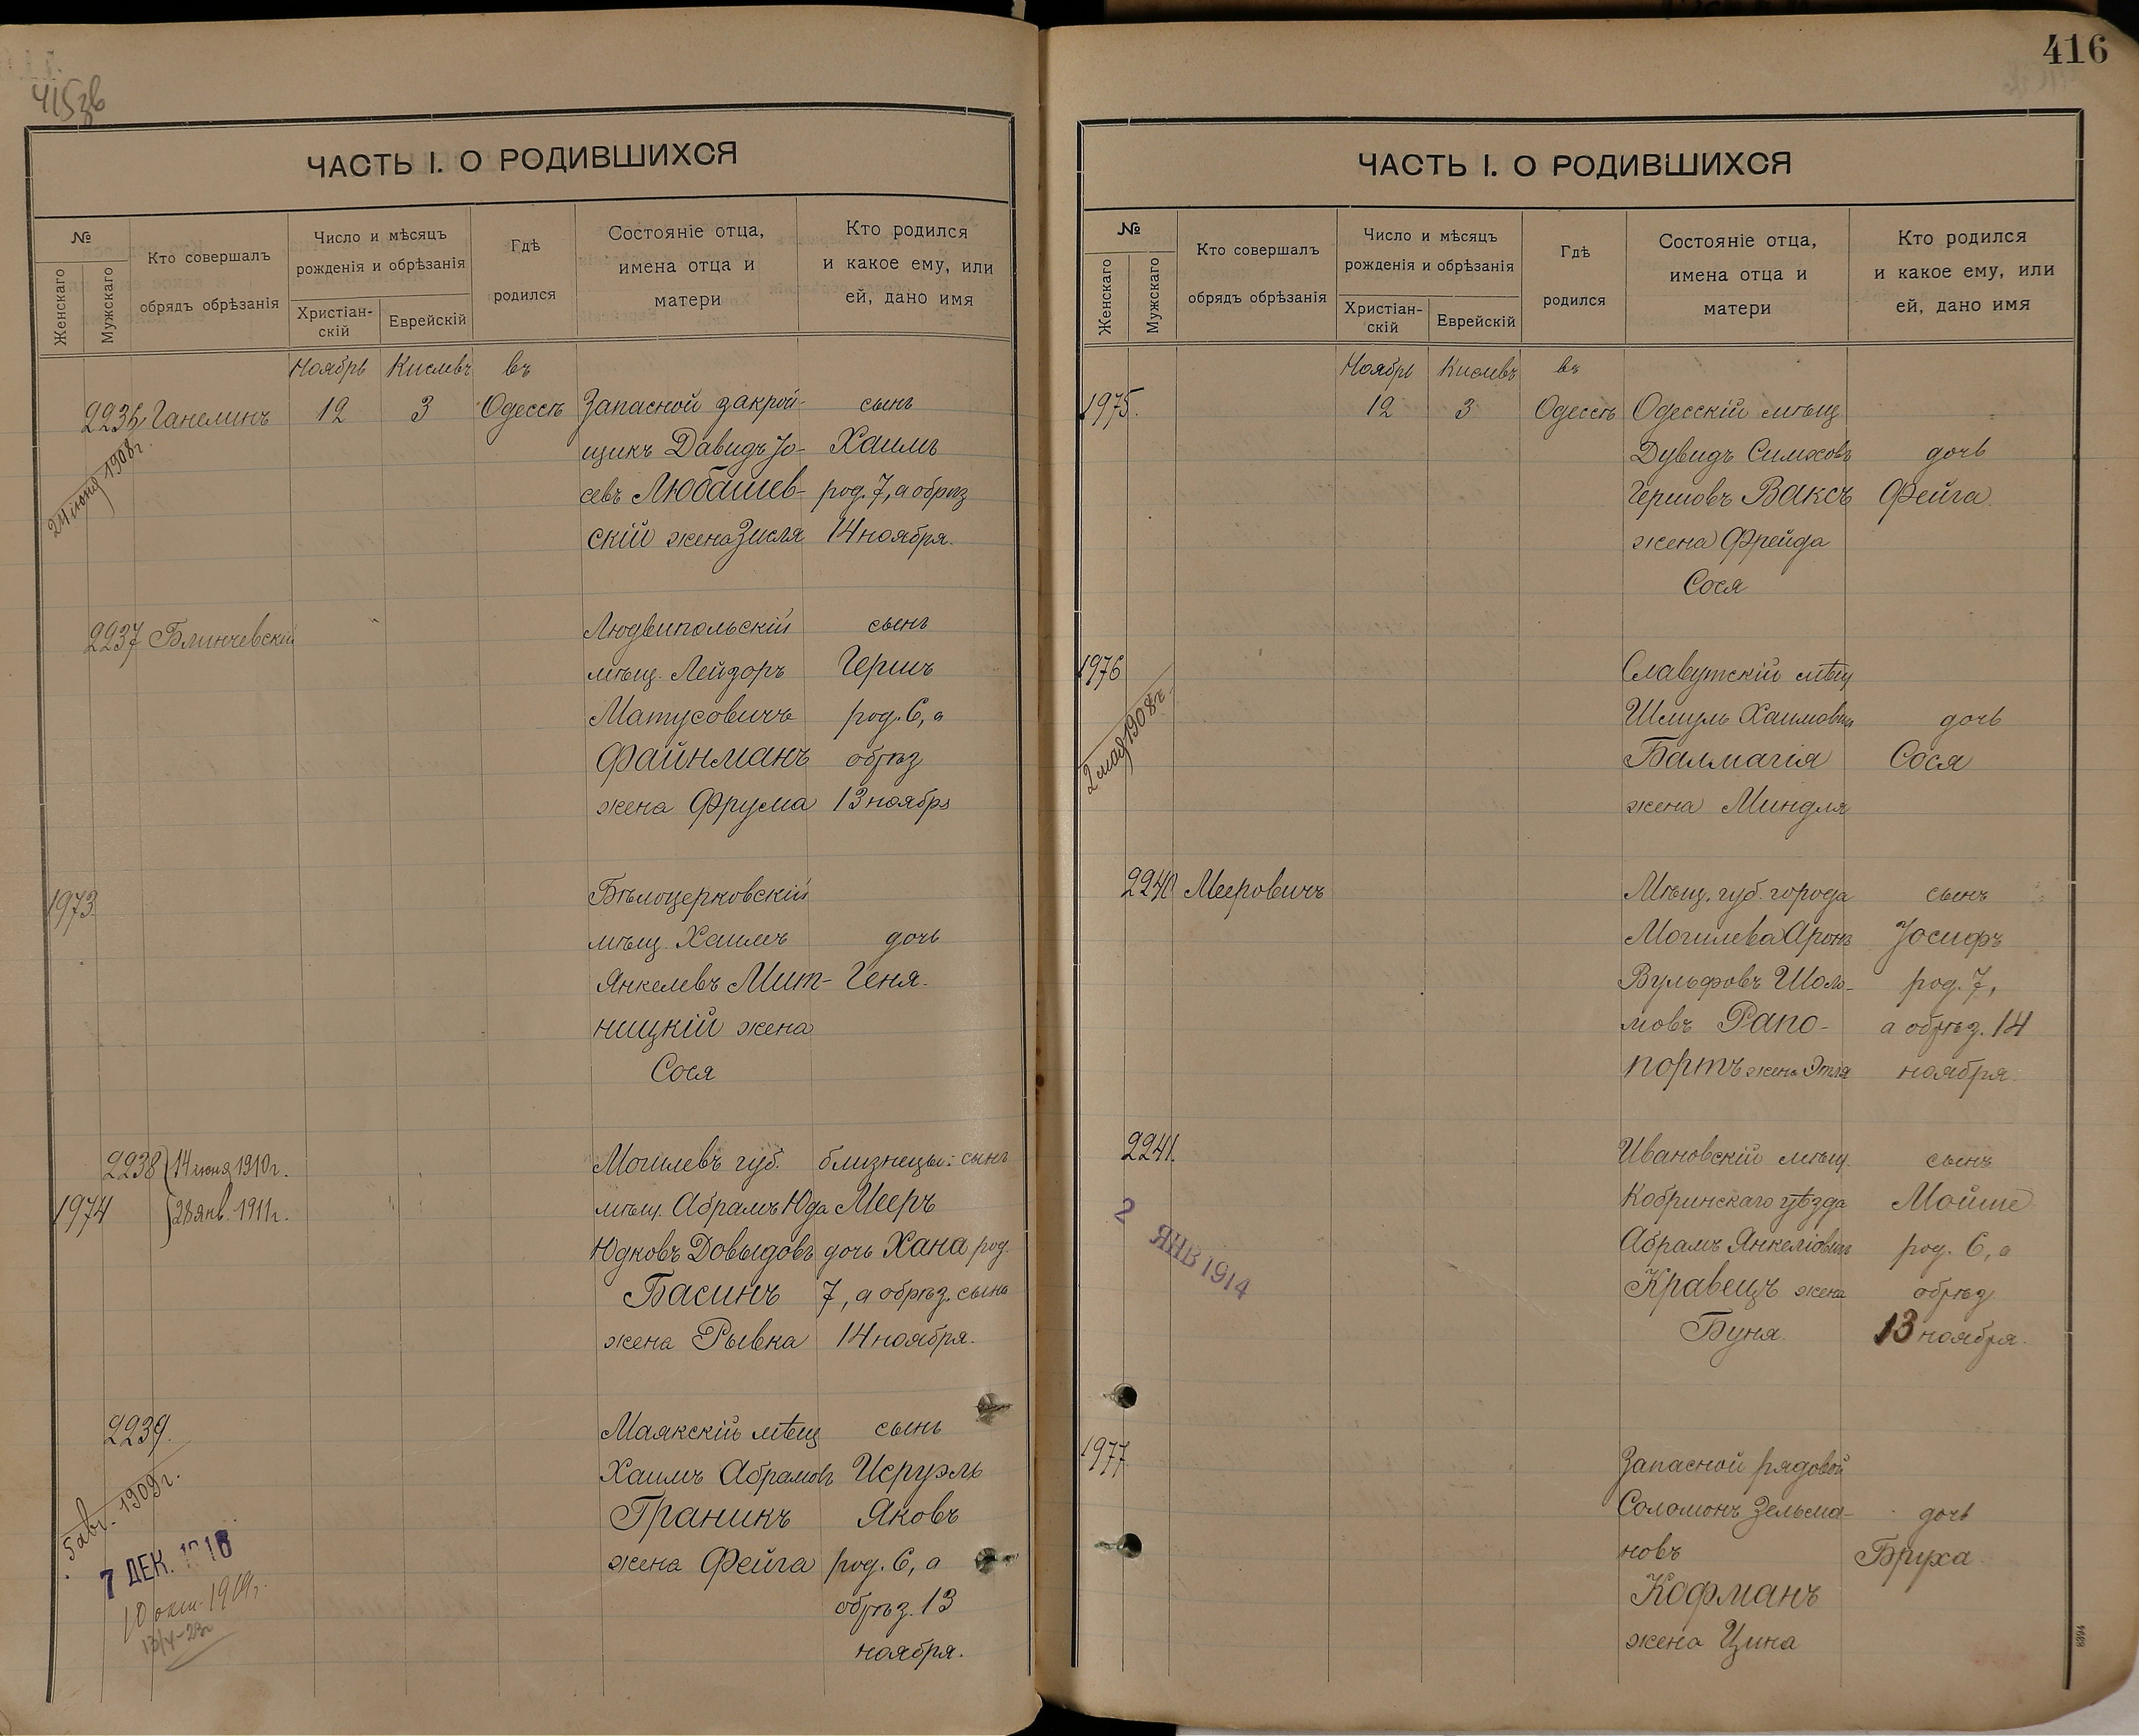 415зв
ЧАСТЬ I. О РОДИВШИХСЯ
№
Женскаго
Мужскаго
Кто совершалъ
обрядъ обрѣзанія
Число и мѣсяцъ
рожденія и обрѣзанія
Христіан-
скій
Еврейскій
Гдѣ
родился
Состояніе отца,
имена отца и
матери
Кто родился
и какое ему, или
ей, дано имя
Ноябрь Кислевъ въ
2236 Ганелинъ 12 3 Одессѣ Запасной закрой- сынъ
щикъ Давидъ Іо- Хаимъ
севъ Любашев- род. 7, а обрѣз
скій жена Зисля 14 ноября.
24 1908 г.
2237 Блинчевскій Людвипольскій сынъ
мѣщ. Лейзоръ Гершъ
Матусовичъ род. 6, а
Файнманъ обрѣз
жена Фрума 13 ноября
1973 Бѣлоцерковскій
мѣщ. Хаимъ дочь
Янкелевъ Мит- Геня.
ницкій жена
Сося
2238 14 июня 1910 г. Могилевъ губ. близнецы: сынъ
1974 28 янв. 1911 г. мѣщ. Абрамъ Юда Мееръ
Юдковъ Довыдовъ дочь Хана род.
Басинъ 7, а обрѣз. сына
жена Рывка 14 ноября.
2239. Маякскій мѣщ сынъ
Хаимъ Абрамовъ Исруэль
Граникъ Яковъ
жена Фейга род. 6, а
обрѣз. 13
ноября.
5 авг. 1909 г.
7 ДЕК. 1916
10 окт. 1919 г.
416
ЧАСТЬ I. О РОДИВШИХСЯ
№
Женскаго
Мужскаго
Кто совершалъ
обрядъ обрѣзанія
Число и мѣсяцъ
рожденія и обрѣзанія
Христіан-
скій
Еврейскій
Гдѣ
родился
Состояніе отца,
имена отца и
матери
Кто родился
и какое ему, или
ей, дано имя
Ноябрь Кислевъ въ
1975. 12 3 Одессѣ Одесскій мѣщ
Дувидъ Симховъ дочь
Гершовъ Ваксъ Фейга
жена Фрейда
Сося
1976 Славутскій мѣщ
Шмуль Хаимовъ дочь
Балмагія Сося
жена Миндля
2 мая 1908 г.
2240 Мееровичъ Мѣщ. губ. города сынъ
Могилева Аронъ Іосифъ
Вульфовъ Шоло- род. 7,
мовъ Рапо- а обрѣз. 14
портъ жена Этля ноября.
2241. Ивановскій мѣщ. сынъ
Кобринскаго уѣзда Мойше
Абрамъ Янкеліовъ род. 6, а
Кравецъ жена обрѣз
Буня. 13 ноября.
2 ЯНВ 1914
1977 Запасной рядовой
Соломонъ Зельма- дочь
новъ Бруха
Кофманъ
жена Цина
8394